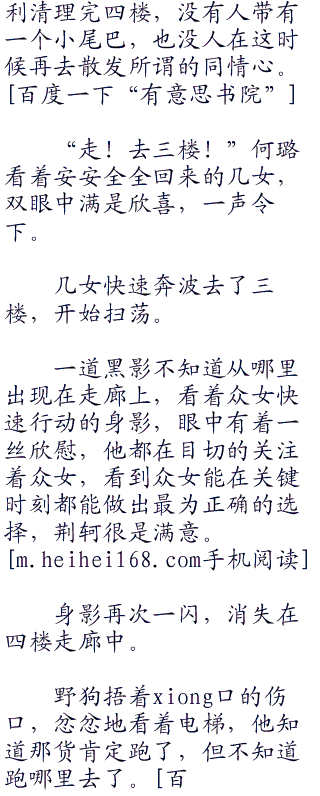 利清理完四楼，没有人带有
一个小尾巴，也没人在这时
候再去散发所谓的同情心。
[百度一下“有意思书院”]
“走！去三楼！”何璐
看着安安全全回来的几女，
双眼中满是欣喜，一声令
下。
几女快速奔波去了三
楼，开始扫荡。
一道黑影不知道从哪里
出现在走廊上，看着众女快
速行动的身影，眼中有着一
丝欣慰，他都在目切的关注
着众女，看到众女能在关键
时刻都能做出最为正确的选
择，荆轲很是满意。
[m.heihei168.com手机阅读]
身影再次一闪，消失在
四楼走廊中。
野狗捂着xiong口的伤
口，忿忿地看着电梯，他知
道那货肯定跑了，但不知道
跑哪里去了。[百